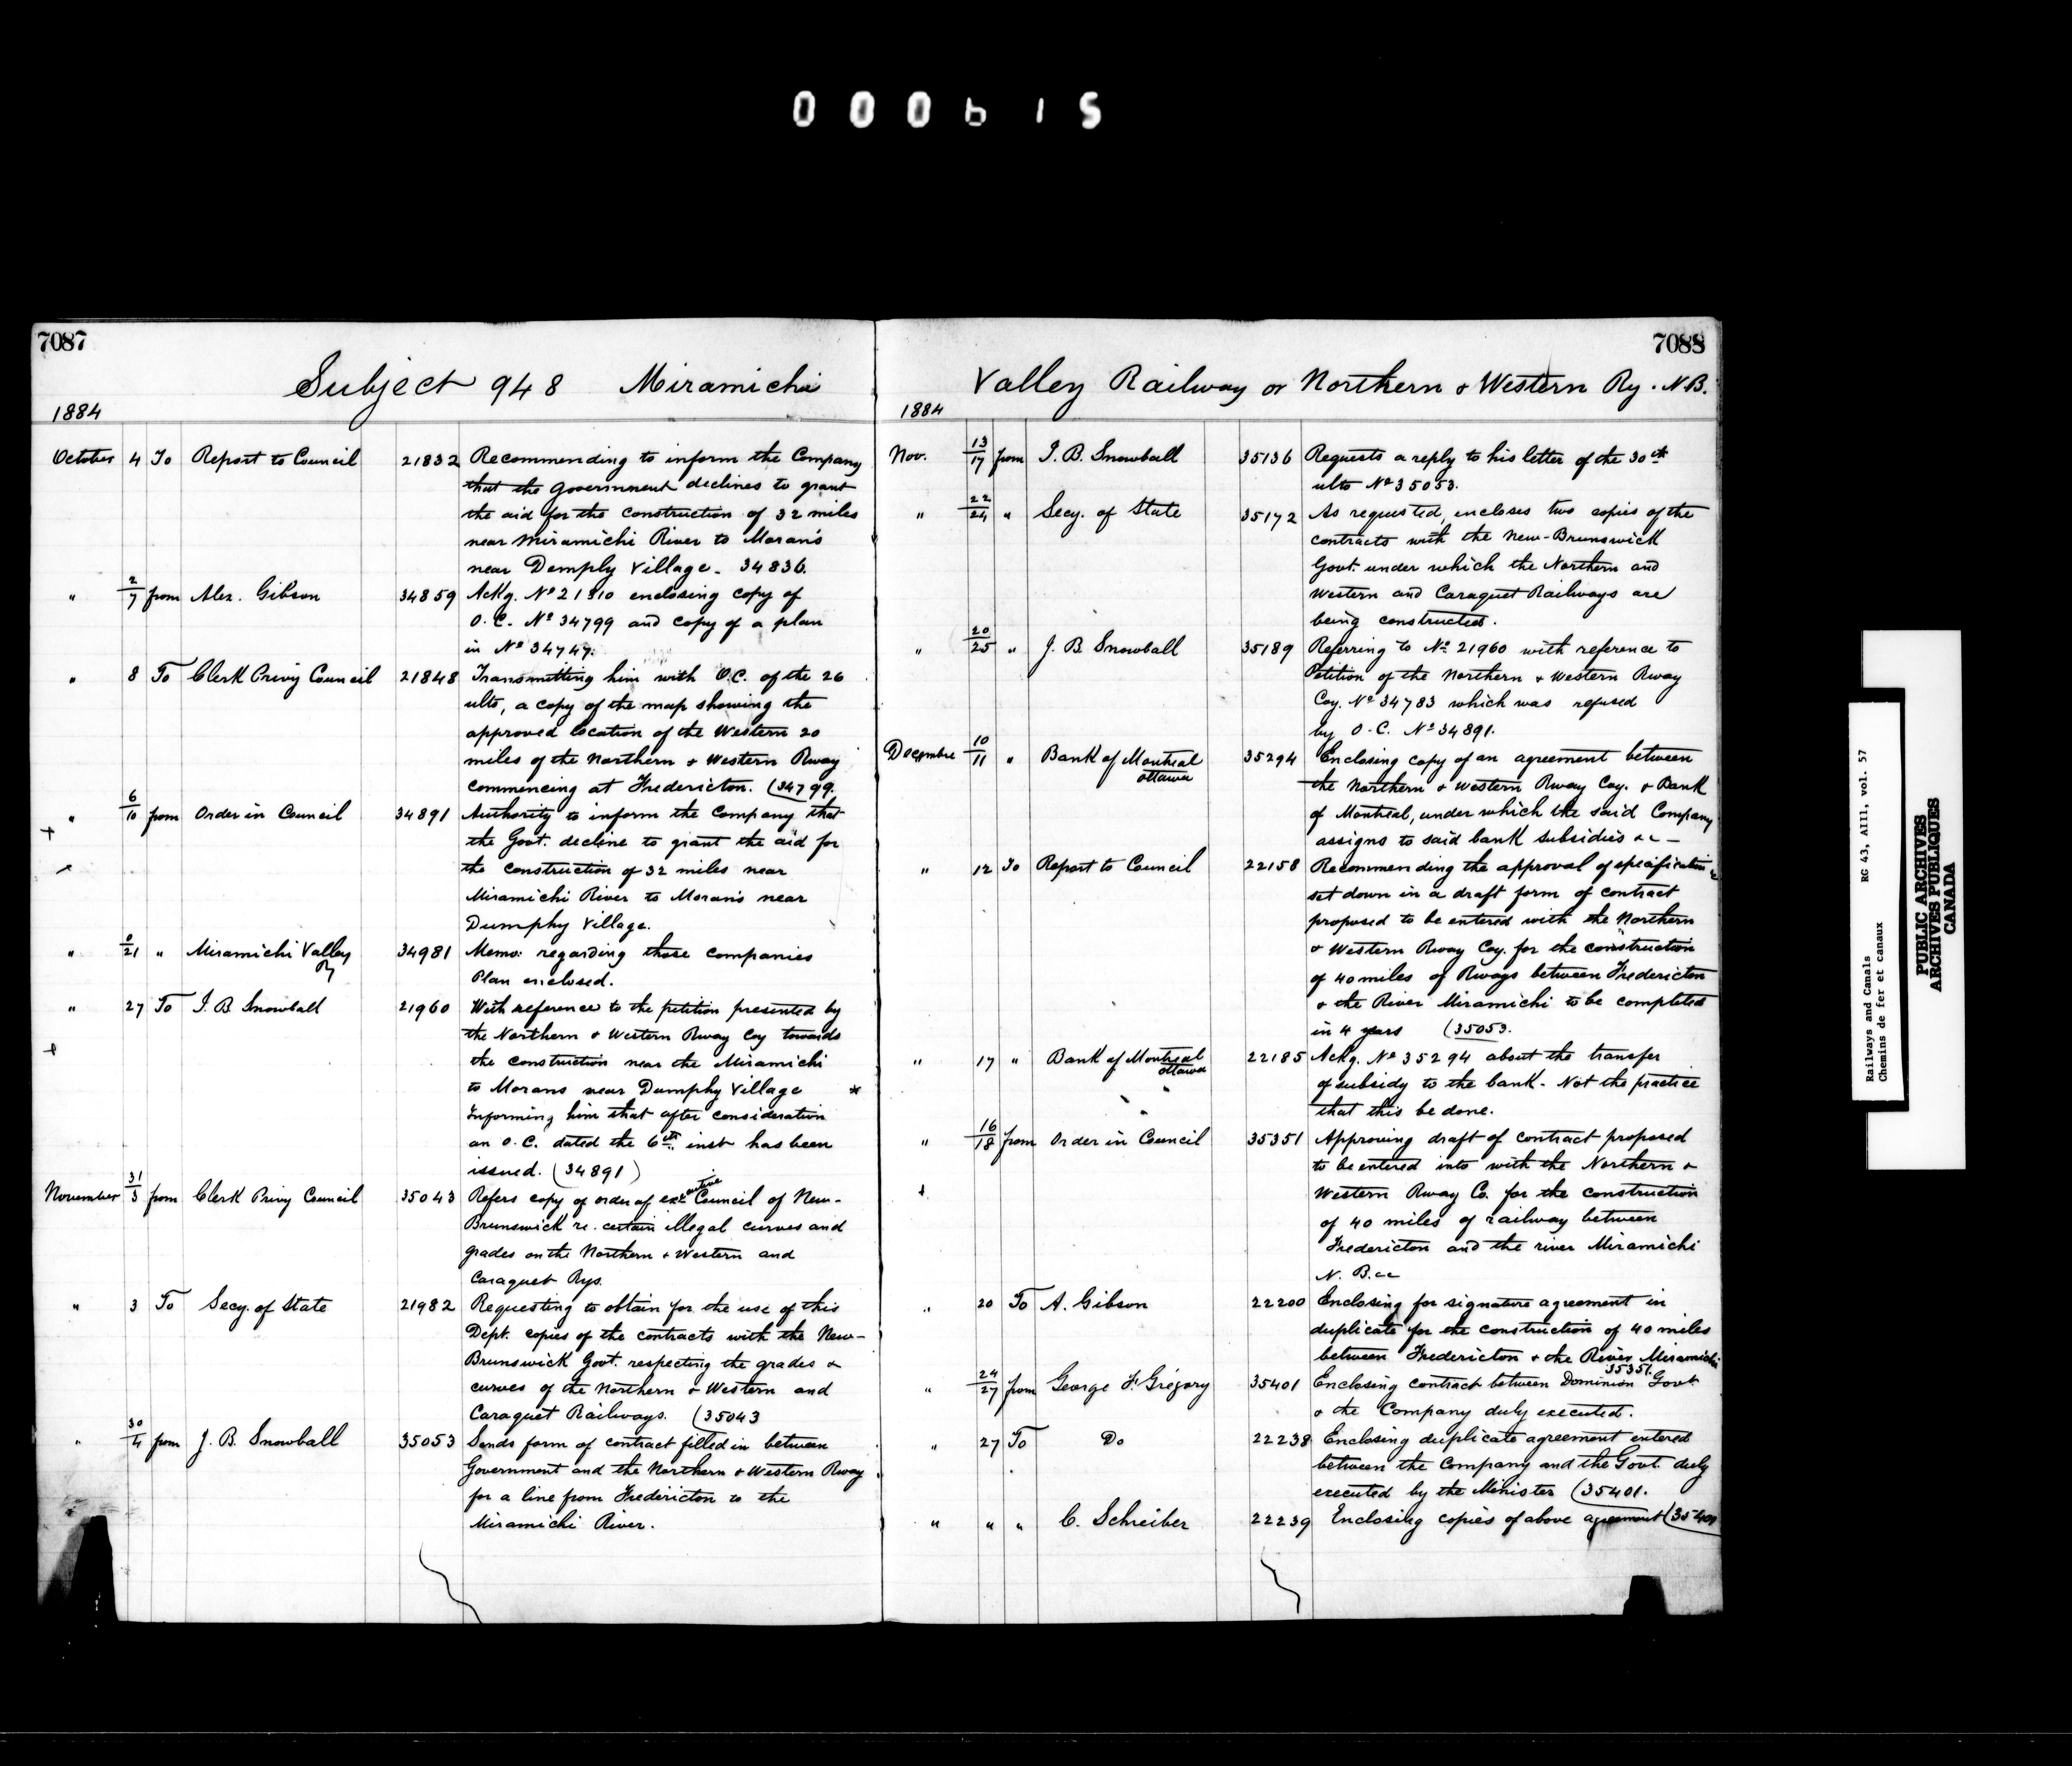 000615
7087
Subject 948 Miramichi
1884
October 4 To Report to Council 21832 Recommending to inform the Company
that the Government declines to grant
the aid for the construction of 32 miles
near Miramichi River to Moran's
near Demply Village - 34836.
" 2/7 from Alex. Gibson 34859 Ackg. No 21810 enclosing copy of
O.C. No 34799 and copy of a plan
in No 34747.
" 8 To Clerk Privy Council 21848 Transmitting him with O.C. of the 26
ulto, a copy of the map showing the
approved location of the Western 20
miles of the Northern & Western Rway
commencing at Fredericton. (34799.
" 6/10 from Order in Council 34891 Authority to inform the Company that
the Govt. decline to grant the aid for
the construction of 32 miles near
Miramichi River to Morans near
Dumphy Village.
" /21 " Miramichi Valley Ry 34981 Memo: regarding those companies
Plan enclosed.
" 27 To J. B. Snowball 21960 With reference to the petition presented by
the Northern & Western Rway Coy towards
the construction near the Miramichi
to Morans near Dumphy Village *
Informing him that after consideration
an O.C. dated the 6th inst has been
issued. (34891)
November 31/3 from Clerk Privy Council 35043 Refers copy of order of executive Council of New-
Brunswick re. certain illegal curves and
grades on the Northern & Western and
Caraquet Rys.
" 3 To Secy. of State 21982 Requesting to obtain for the use of this
Dept. copies of the contracts with the New-
Brunswick Govt. respecting the grades &
curves of the Northern & Western and
Caraquet Railways. (35043
" 30/4 from J. B. Snowball 35053 Sends form of contract filled in between
Government and the Northern & Western Rway
for a line from Fredericton to the
Miramichi River.
7088
Valley Railway or Northern & Western Ry. N.B.
1884
Nov. 13/17 from J. B. Snowball 35136 Requests a reply to his letter of the 30th
ulto No 35053.
" 22/24 " Secy. of State 35172 As requested, encloses two copies of the
contracts with the New-Brunswick
Govt. under which the Northern and
Western and Caraquet Railways are
being constructed.
" 20/25 " J. B. Snowball 35189 Referring to No 21960 with reference to
Petition of the Northern & Western Rway
Coy. No 34783 which was refused
by O.C. No 34891.
Decembre 10/11 " Bank of Montreal Ottawa 35294 Enclosing copy of an agreement between
the Northern & Western Rway Coy. & Bank
of Montreal, under which the said Company
assigns to said bank subsidies &c -
" 12 To Report to Council 22158 Recommending the approval of specification
set down in a draft form of contract
proposed to be entered with the Northern
& Western Rway Coy. for the construction
of 40 miles of Rways between Fredericton
& the River Miramichi to be completed
in 4 years (35053.
" 17 " Bank of Montreal Ottawa 22185 Ackg. No 35294 about the transfer
of subsidy to the bank - Not the practice
that this be done.
" 16/18 from Order in Council 35351 Approving draft of contract proposed
to be entered into with the Northern &
Western Rway Co. for the construction
of 40 miles of railway between
Fredericton and the river Miramichi
N. B. &c
" 20 To A. Gibson 22200 Enclosing for signature agreement in
duplicate for the construction of 40 miles
between Fredericton & the River Miramichi
35351.
" 24/27 from George F. Gregory 35401 Enclosing contract between Dominion Govt
& the Company duly executed.
" 27 To Do 22238 Enclosing duplicate agreement entered
between the Company and the Govt. duly
executed by the Minister (35401.
" " " C. Schreiber 22239 Enclosing copies of above agreement (35401
Railways and Canals RG 43, AIII, vol. 57
Chemins de fer et canaux
PUBLIC ARCHIVES
ARCHIVES PUBLIQUES
CANADA